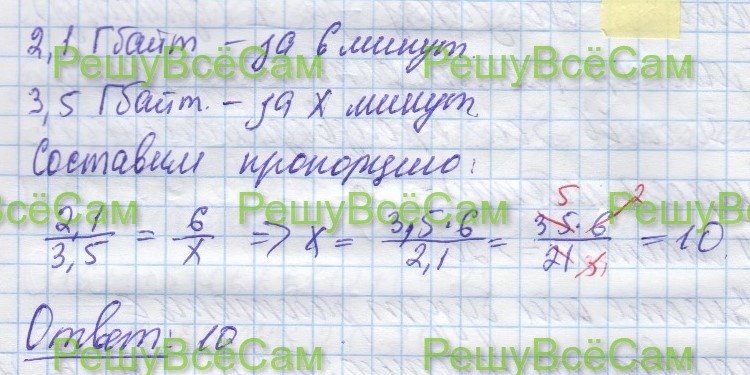 2,1 Гбайт – за 6 минут
РешуВсёСам РешуВсёСам
3,5 Гбайт. – за x минут.
Составим пропорцию:
уВсёСам РешуВсёСам РешуВс
2,1/3,5 = 6/x => x = 3,5·6/2,1 = 35·6/21 = 10.
5 2
3 1
Ответ: 10
РешуВсёСам РешуВсёСам